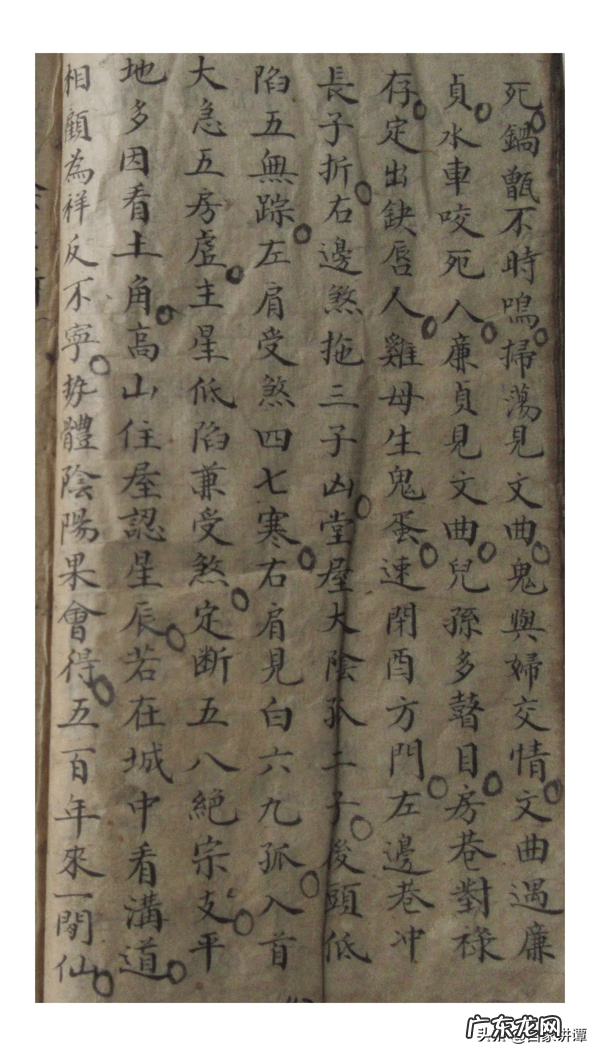 死鍋甑不時鳴掃蕩見文曲鬼與婦交情文曲遇廉
貞水車咬死人廉貞見文曲兒孫多瞽目房巷對祿
存定出缺唇人雞母生鬼蛋速閉酉方門左邊巷冲
長子折右邊煞拖三子凶堂屋大陰孤二子後頭低
陷五無踪左肩受煞四七寒右肩見白六九孤入首
大急五房虛主星低陷兼受煞定断五八絕宗支平
地多因看土角高山住屋認星辰若在城中看溝道
相顧為祥反不寧体體陰陽果會得五百年來一間仙
广东龙网